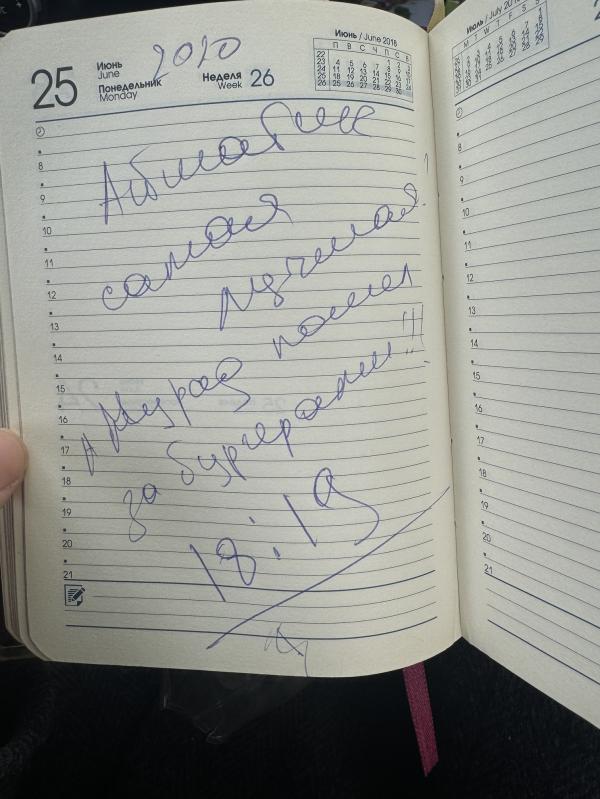 25 Июнь June 2020
Понедельник Monday
Неделя Week 26
Июнь / June 2018
П В С Ч П С В
22 1 2 3
23 4 5 6 7 8 9 10
24 11 12 13 14 15 16 17
25 18 19 20 21 22 23 24
26 25 26 27 28 29 30
8
9
10
11
12
13
14
15
16
17
18
19
20
21
самая
лучшая!
А Мурад пошел
за бургерами!!!
18:19
Июль / July 2018
8
9
10
11
12
13
14
15
16
17
18
19
20
21